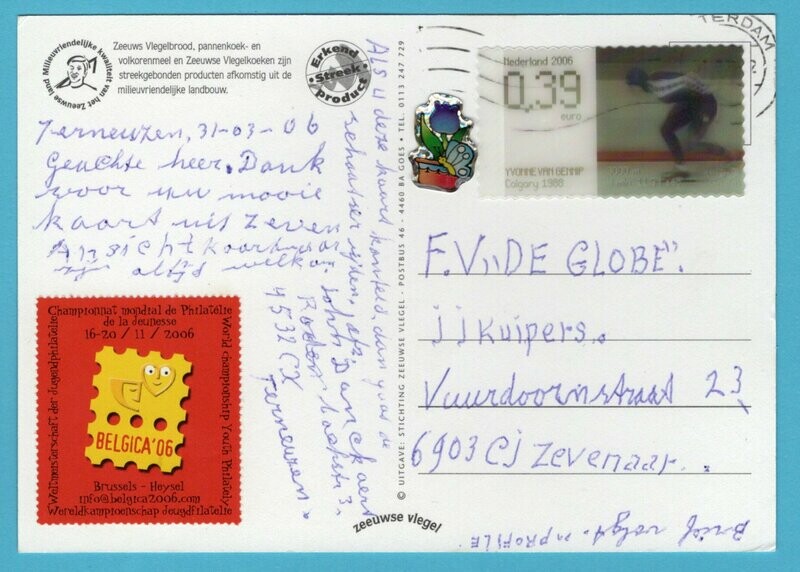 Milieuvriendelijke kwaliteit van het Zeeuwse land
Zeeuws Vlegelbrood, pannenkoek- en
volkorenmeel en Zeeuwse Vlegelkoeken zijn
streekgebonden producten afkomstig uit de
milieuvriendelijke landbouw.
Erkend
Streek
product
Terneuzen, 31-03-06
Geachte heer. Dank
voor uw mooie
kaart uit Zeven
Ansichtkaarten
zijn altijd welko
Als u deze kaart kanteld, dan gaat de
schaatser rijden,
John Danckaert
3.
4532CX
Terneuzen.
Championnat mondial de Philatélie
de la Jeunesse
16-20 / 11 / 2006
World championship Youth Philately
Weltmeisterschaft der Jugendphilatelie
BELGICA'06
Brussels - Heysel
info@belgica2006.com
Wereldkampioenschap Jeugdfilatelie
© UITGAVE: STICHTING ZEEUWSE VLEGEL - POSTBUS 46 - 4460 BA GOES - TEL. 0113 247 729
zeeuwse vlegel
TERDAM
Nederland 2006
0,39
euro
YVONNE VAN GENNIP
Calgary 1988
F.V. "DE GLOBE".
jj Kuipers.
Vuurdoornstraat 23
6903 CJ Zevenaar.
Brief volgt.